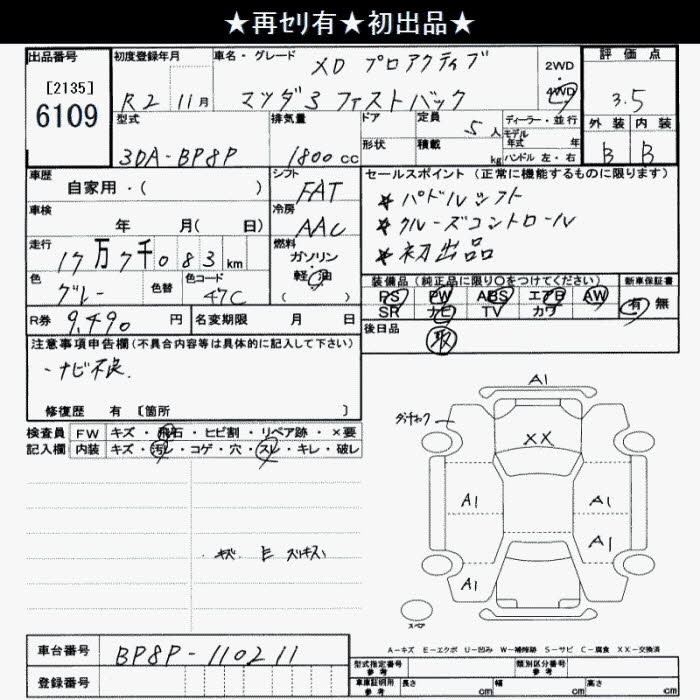 ★再セリ有★初出品★
出品番号
[2135]
6109
初度登録年月
R2 11月
車名・グレード
XD プロアクティブ
マツダ3 ファストバック
2WD
4WD
評価点
3.5
外装 内装
B B
型式
3DA-BP8P
排気量
1800 cc
ドア
形状
定員 5人
積載 kg
ディーラー・並行
モデル年式 年
ハンドル 左・右
車歴
自家用・( )
シフト
FAT
車検
年 月( 日)
冷房
AAC
走行
17万7千083 km
燃料
ガソリン
軽油
( )
色
グレー
色替
色コード
47C
R券 9,490 円
名変期限 月 日
セールスポイント(正常に機能するものに限ります)
* パドルシフト
* クルーズコントロール
* 初出品
装備品(純正品に限り〇をつけてください)
PS PW ABS エアB AW
SR ナビ TV カワ
新車保証書
有 無
後日品
取
注意事項申告欄(不具合内容等は具体的に記入して下さい)
・ナビ不良.
修復歴 有 〔箇所 〕
検査員
記入欄
FW キズ・飛石・ヒビ割・リペア跡・×要
内装 キズ・汚レ・コゲ・穴・スレ・キレ・破レ
A1
XX
A1
A1
A1
A1
スペア
A-キズ E-エクボ U-凹み W-補修跡 S-サビ C-腐食 XX-交換済
車台番号 BP8P-110211
登録番号
型式指定番号
参考
類別区分番号
参考
車庫証明用
参考
長さ cm 幅 cm 高さ cm